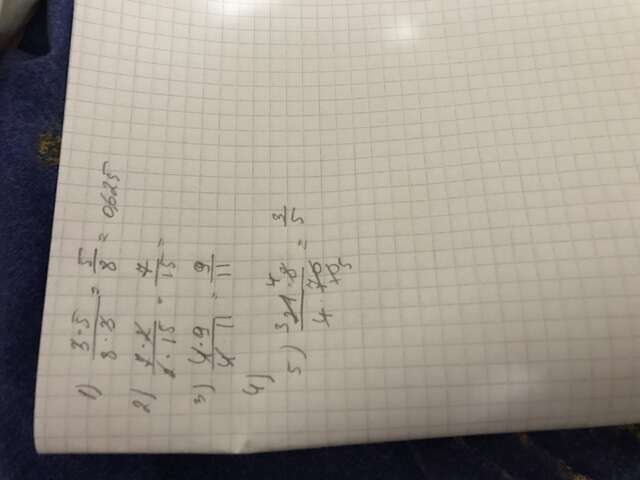 1) 3·5 / 8·3 = 5/8 = 0,625
2) 7·2 / 2·15 = 7/15 =
3) 4·9 / 4 11 = 9/11
4)
5) 3 21·8 4 / 4·70 10 5 = 3/5